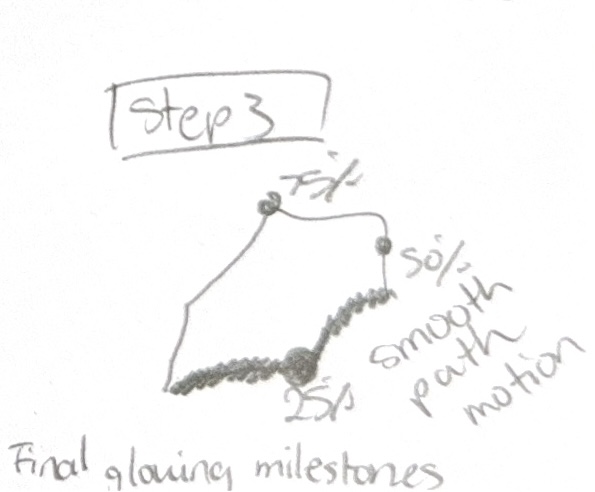 Step 3
75%
50%
smooth
path
motion
25%
Final glowing milestones